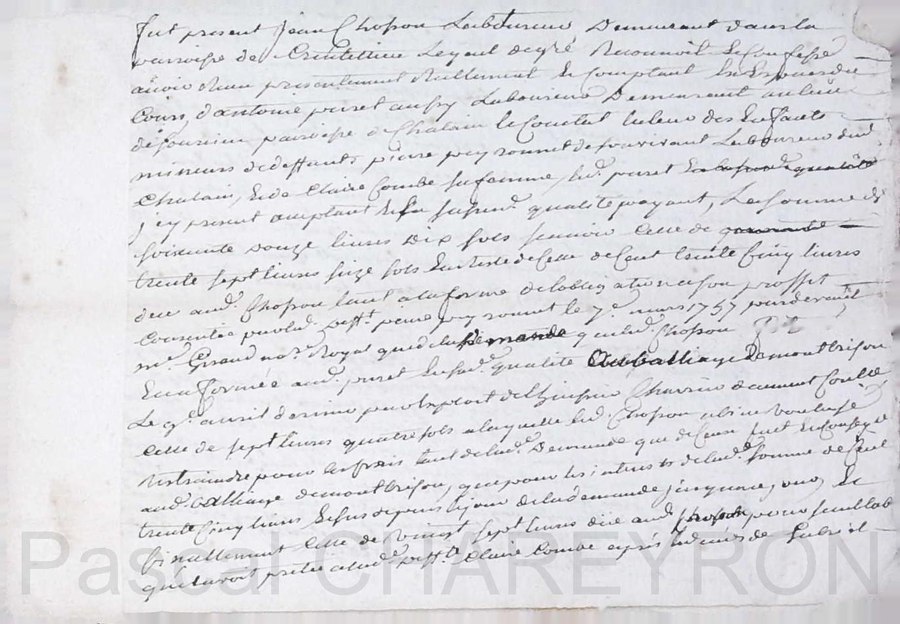 fut present Jean Chosson Laboureur Demeurant dans la
parroisse de Lequel de gré Reconnoît et Confesse
avoir Reçu presentement Reallement et Comptant en Especes du
Cours, d'antoine puret aussy Laboureur Demeurant au lieu
de parroisse de Chalain le Comtal tuteur des Enfants
mineurs de deffunts pierre peyronnet de vivant Laboureur dud.
Chalain, et de Claire Combe sa femme, led. puret
icy present acceptant et En sad. qualité payant, La somme de
soixante douze livres dix sols scavoir celle de
trente sept livres seize sols En reste de celle de Cent trente Cinq livres
deue aud. Chosson tant a la forme de lobligation a son proffit
Consentie par led. defft. pierre peyronnet le 7e mars 1757 pardevant
me. Giraud no.re Royal que de la demande que led. Chosson
En a formée aud. puret En sad. qualité Au balliage De montbrison
Le avril dernier par Exploit de l'huissier Charrin
Celle de sept livres quatre sols a laquelle led. Chosson a bien voulu se
restraindre pour les frais tant de lad. Demande que de Ceux fait En Conseq.
aud. Balliage de montbrison, que pour les interests de lad. somme de Cent
trente Cinq livres Echus depuis le jour de lad. demande jusqu'a Et
finallement Celle de vingt sept livres due aud. Chosson pour semblable
quil avoit pretée a lad. deffte. Claire Combe après le deces de
Pascal CHAREYRON